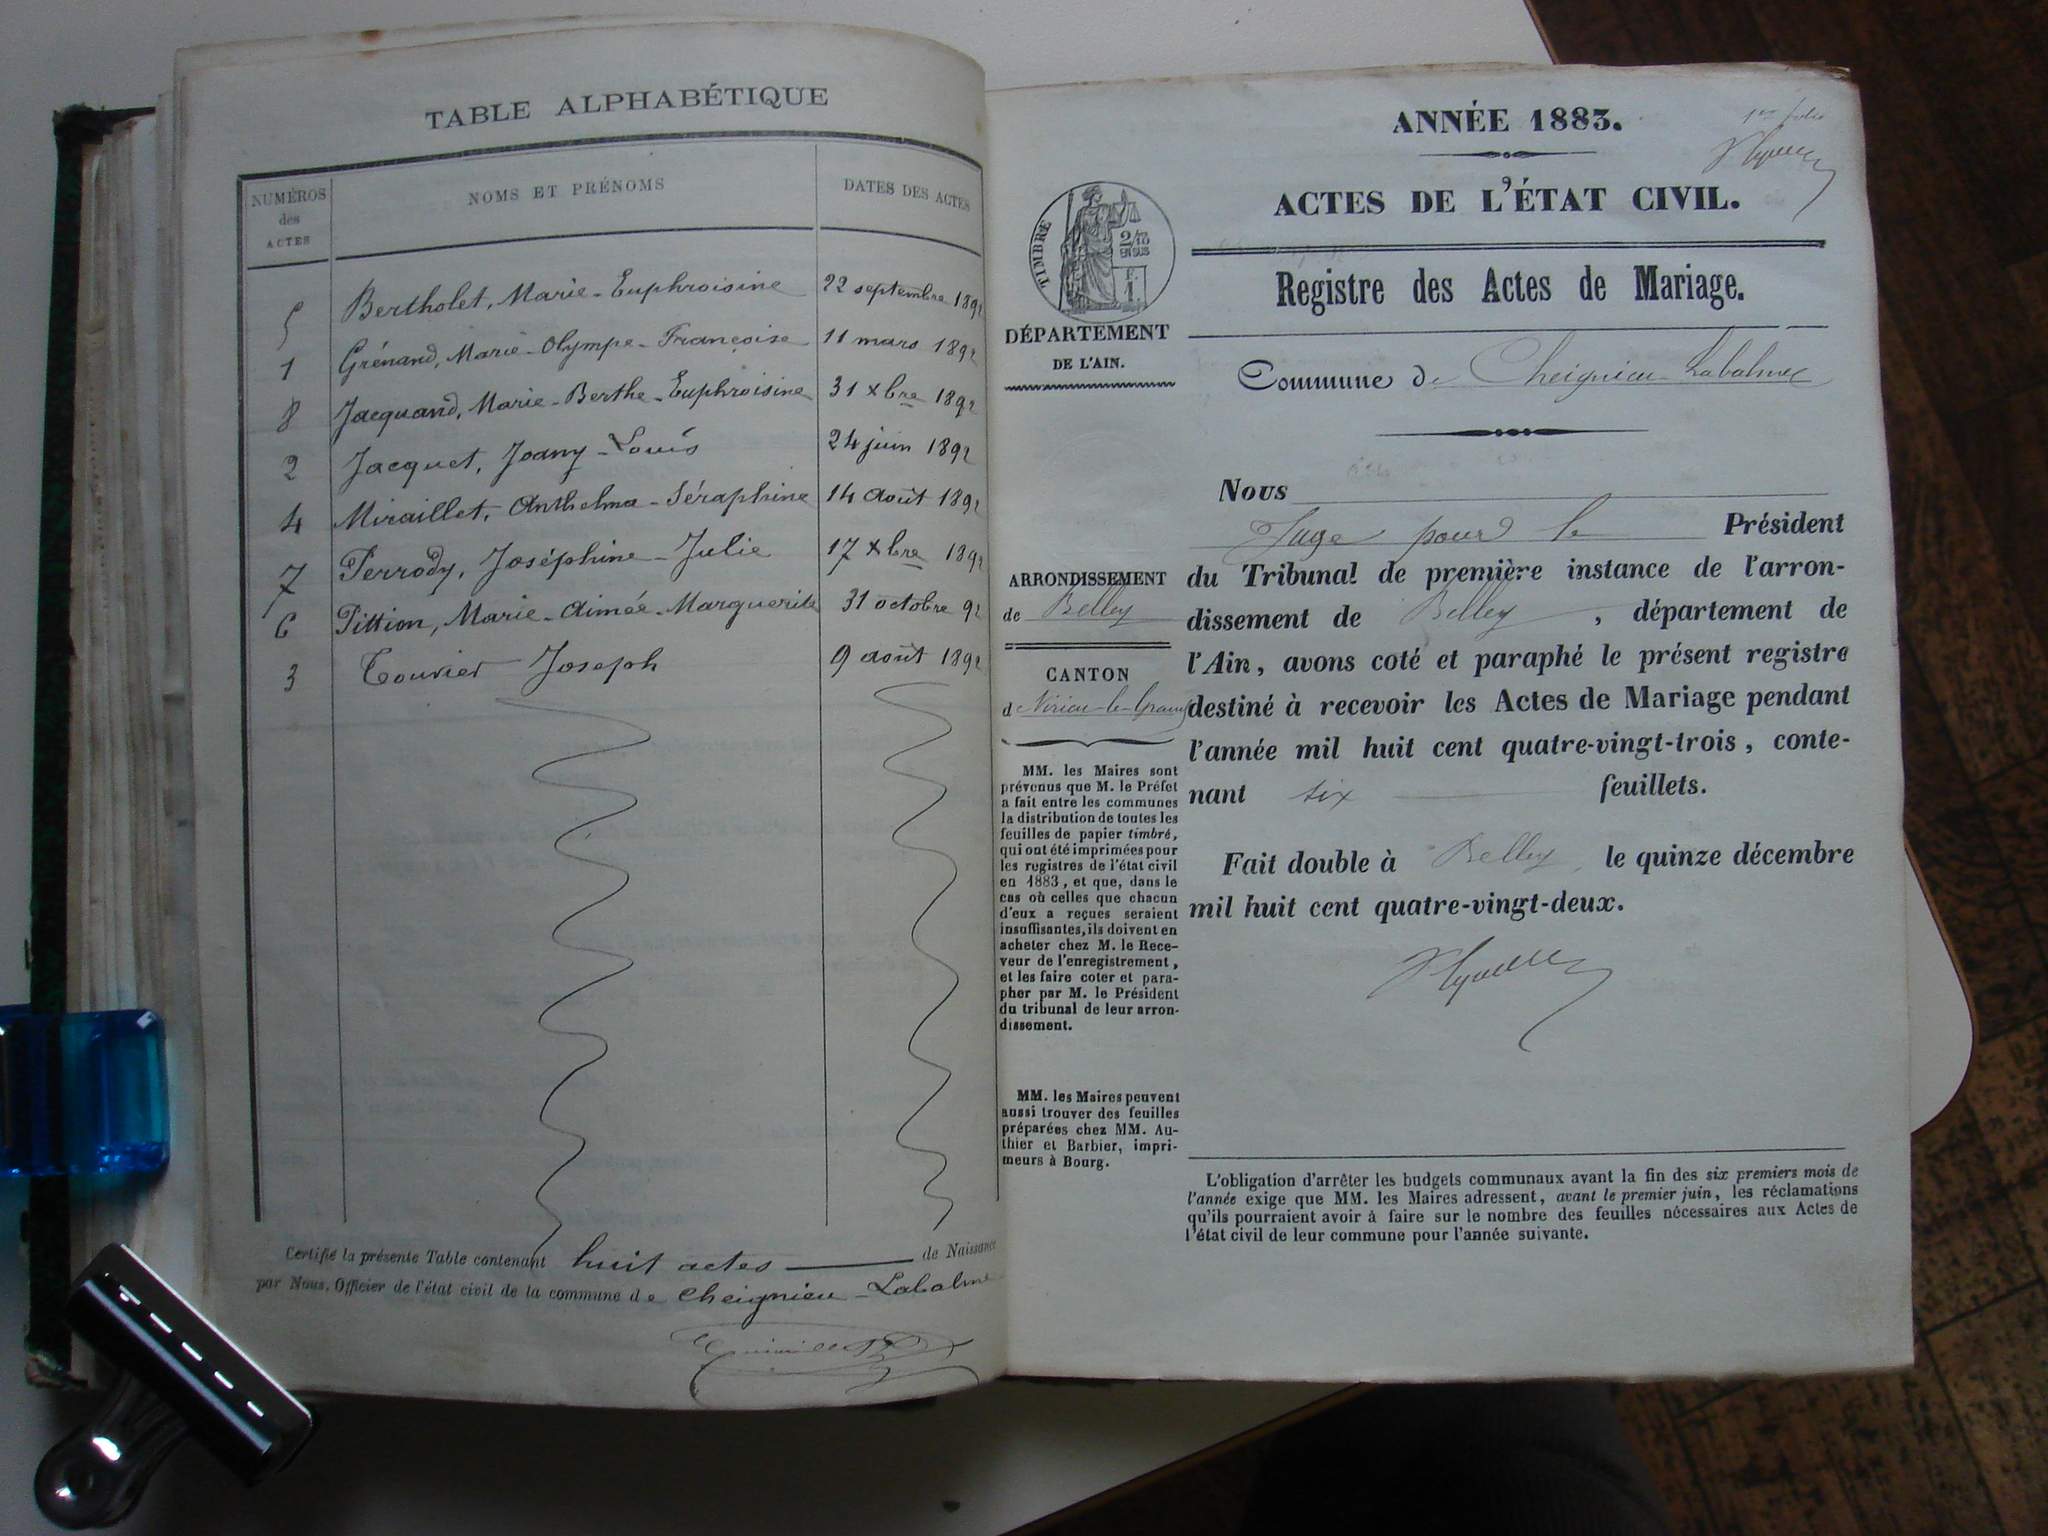 TABLE ALPHABÉTIQUE
NUMÉROS des ACTES NOMS ET PRÉNOMS DATES DES ACTES
5 Bertholet, Marie-Euphroisine 22 septembre 1892
1 Grénand, Marie-Olympe-Françoise 11 mars 1892
8 Jacquand, Marie-Berthe-Euphroisine 31 xbre 1892
2 Jacquet, Joany-Louis 24 juin 1892
4 Miraillet, Anthelma-Séraphine 14 août 1892
7 Perrody, Joséphine-Julie 17 xbre 1892
6 Pittion, Marie-Aimée-Marguerite 31 octobre 92
3 Touvier Joseph 9 août 1892
Certifié la présente Table contenant huit actes de Naissance
par Nous, Officier de l'état civil de la commune de Cheignieu-Labalme
1er folio
ANNÉE 1883.
ACTES DE L'ÉTAT CIVIL.
Registre des Actes de Mariage.
TIMBRE
2/10
EN SUS
F.
1
DÉPARTEMENT
DE L'AIN.
Commune de Cheignieu-Labalme
ARRONDISSEMENT
de Belley
CANTON
de Virieu-le-Grand
MM. les Maires sont
prévenus que M. le Préfet
a fait entre les communes
la distribution de toutes les
feuilles de papier timbré,
qui ont été imprimées pour
les registres de l'état civil
en 1883, et que, dans le
cas où celles que chacun
d'eux a reçues seraient
insuffisantes, ils doivent en
acheter chez M. le Rece-
veur de l'enregistrement,
et les faire coter et para-
pher par M. le Président
du tribunal de leur arron-
dissement.
MM. les Maires peuvent
aussi trouver des feuilles
préparées chez MM. Au-
thier et Barbier, impri-
meurs à Bourg.
Nous
Juge pour le Président
du Tribunal de première instance de l'arron-
dissement de Belley, département de
l'Ain, avons coté et paraphé le présent registre
destiné à recevoir les Actes de Mariage pendant
l'année mil huit cent quatre-vingt-trois, conte-
nant six feuillets.
Fait double à Belley le quinze décembre
mil huit cent quatre-vingt-deux.
L'obligation d'arrêter les budgets communaux avant la fin des six premiers mois de
l'année exige que MM. les Maires adressent, avant le premier juin, les réclamations
qu'ils pourraient avoir à faire sur le nombre des feuilles nécessaires aux Actes de
l'état civil de leur commune pour l'année suivante.